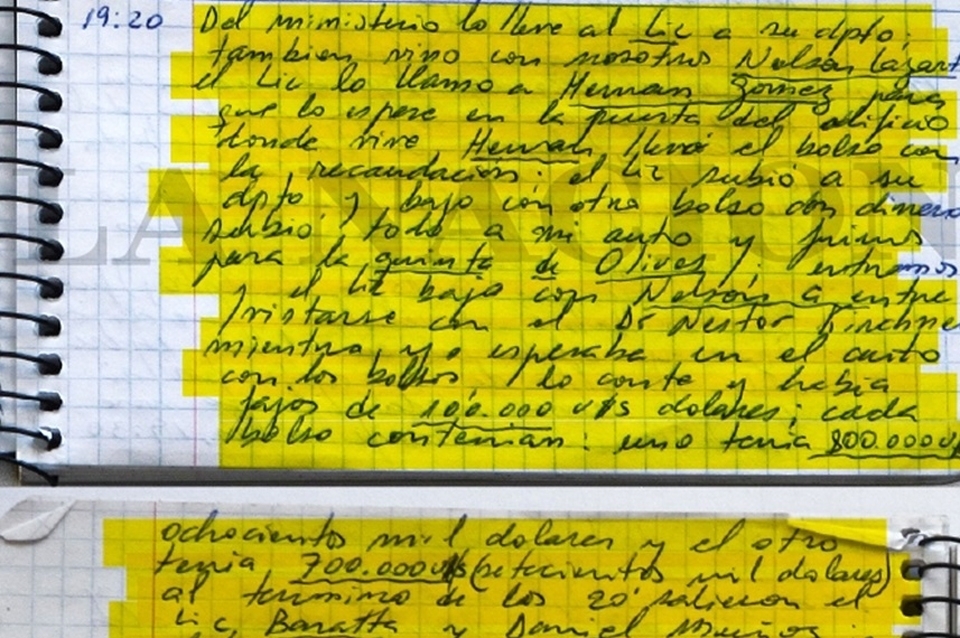 19:20 Del ministerio lo lleve al Lic a su dpto;
tambien vino con nosotros Nelson Lazart
el Lic lo llamo a Hernan Gomez para
que lo espere en la puerta del edificio
donde vive, Hernan llevó el bolso con
la recaudación; el Lic subió a su
dpto y bajo con otro bolso con dinero
subio todo a mi auto y fuimos
para la quinta de Olivos; entramos
y el Lic bajo con Nelson a entre
vistarse con el Dr Nestor Kirchne
mientra yo esperaba en el auto
con los bolsos, lo conte y habia
fajos de 100.000 u$s dolares; cada
bolso contenian: uno tenia 800.000 u$
ochocientos mil dolares y el otro
tenia 700.000 u$s (setecientos mil dolares)
al termino de los 20' salieron el
Lic, Baratta y Daniel Muñoz
LA NACION